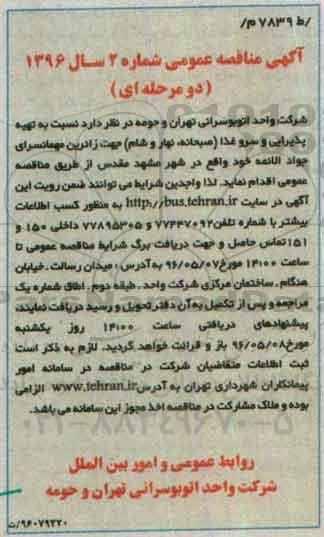 /ط ۷۸۳۹م/
آگهی مناقصه عمومی شماره ۲ سال ۱۳۹۶
(دو مرحله ای)
شرکت واحد اتوبوسرانی تهران و حومه در نظر دارد نسبت به تهیه
پذیرایی و سرو غذا (صبحانه، نهار و شام) جهت زائرین مهمانسرای
جواد الائمه خود واقع در شهر مشهد مقدس از طریق مناقصه
عمومی اقدام نماید. لذا واجدین شرایط می توانند ضمن رویت این
آگهی در سایت http://bus.tehran.ir به منظور کسب اطلاعات
بیشتر با شماره تلفن ۷۷۴۴۷۰۹۲ و ۷۷۸۹۵۳۰۵ داخلی ۱۵۰ و
۱۵۱ تماس حاصل و جهت دریافت برگ شرایط مناقصه عمومی تا
ساعت ۱۴:۰۰ مورخ ۹۶/۰۵/۰۷ به آدرس: میدان رسالت. خیابان
هنگام. ساختمان مرکزی شرکت واحد. طبقه دوم. اطاق شماره یک
مراجعه و پس از تکمیل به آن دفتر تحویل و رسید دریافت نمایند.
پیشنهادهای دریافتی ساعت ۱۴:۰۰ روز یکشنبه
مورخ ۹۶/۰۵/۰۸ باز و قرائت خواهد گردید. لازم به ذکر است
ثبت اطلاعات متقاضیان شرکت در مناقصه در سامانه امور
پیمانکاران شهرداری تهران به آدرس www.tehran.ir الزامی
بوده و ملاک مشارکت در مناقصه اخذ مجوز این سامانه می باشد.
روابط عمومی و امور بین الملل
شرکت واحد اتوبوسرانی تهران و حومه
۹۶۰۷۹۲۲۰/ت
۰۲۱-۸۸۳۴۹۶۷۰-۵